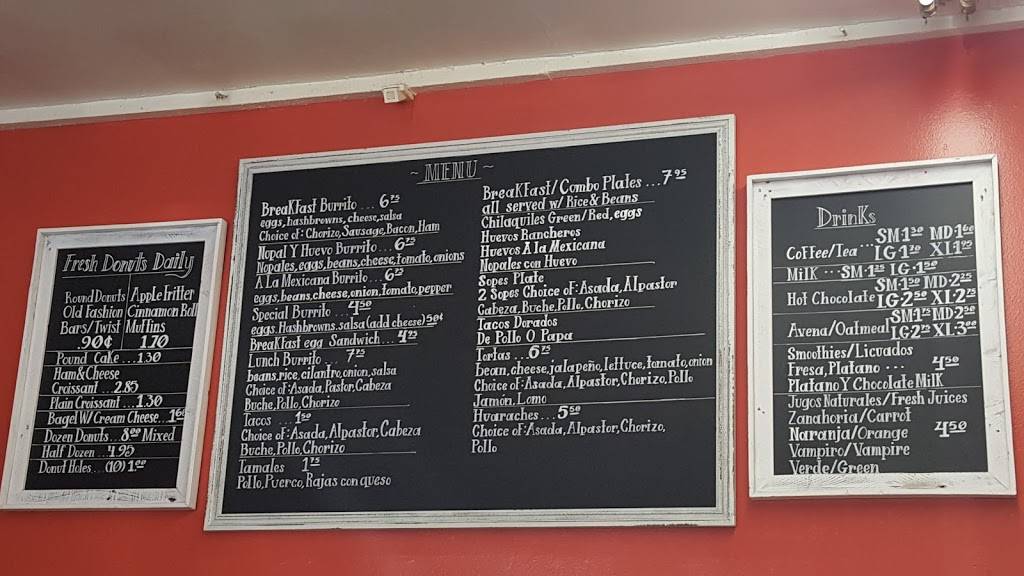 Fresh Donuts Daily
Round Donuts
Old Fashion
Bars/Twist
90¢
Apple Fritter
Cinnamon Roll
Muffins
1.70
Pound Cake...1.30
Ham&Cheese
Croissant...2.85
Plain Croissant...1.30
Bagel W/Cream Cheese..1.60
Dozen Donuts..8.00 Mixed
Half Dozen...4.95
Donut Holes...(10)1.00
~MENU~
Breakfast Burrito...6.25
eggs, hashbrowns, cheese, salsa
Choice of: Chorizo, Sausage, Bacon, Ham
Nopal Y Huevo Burrito...6.25
Nopales, eggs, beans, cheese, tomato, onions
A La Mexicana Burrito...6.25
eggs, beans, cheese, onion, tomato, pepper
Special Burrito...4.50
eggs, Hashbrowns, salsa (add cheese) 50¢
Breakfast egg Sandwich...4.25
Lunch Burrito... 7.25
beans, rice, cilantro, onion, salsa
Choice of: Asada, Pastor, Cabeza
Buche, Pollo, Chorizo
Tacos...1.50
Choice of: Asada, Alpastor, Cabeza
Buche, Pollo, Chorizo
Tamales 1.75
Pollo, Puerco, Rajas con queso
Breakfast/Combo Plates...7.95
all served w/Rice & Beans
Chilaquiles Green/Red, eggs
Huevos Rancheros
Huevos A la Mexicana
Nopales con Huevo
Sopes Plate
2 Sopes Choice of: Asada, Alpastor
Cabeza, Buche, Pollo, Chorizo
Tacos Dorados
De Pollo O Papa
Tortas...6.25
bean, cheese, jalapeño, lettuce, tomato, onion
Choice of: Asada, Alpastor, Chorizo, Pollo
Jamón, Lomo
Huaraches...5.50
Choice of: Asada, Alpastor, Chorizo,
Pollo
Drinks
SM.1.30 MD.1.60
Coffee/Tea...LG.1.80 XL1.95
Milk...SM.1.25 LG.1.50
SM.1.50 MD.2.25
Hot Chocolate LG.2.50 XL2.75
SM1.75 MD2.25
Avena/Oatmeal LG.2.50 XL.3.00
Smoothies/Licuados
Fresa, Platano... 4.50
Platano Y Chocolate Milk
Jugos Naturales/Fresh Juices
Zanahoria/Carrot
Naranja/Orange 4.50
Vampiro/Vampire
Verde/Green